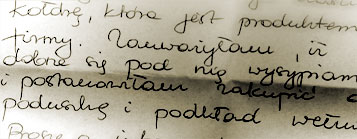 kołdrę, która jest produktem
firmy. Zauważyłam, iż
dobrze się pod nią wysypiam
i postanowiłam zakupić
poduszkę i podkład wełn
Proszę